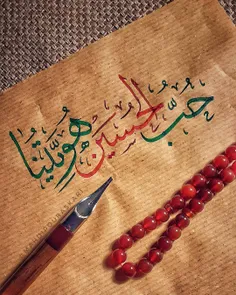 حُبُّ الحُسَين هُويَّتُنا